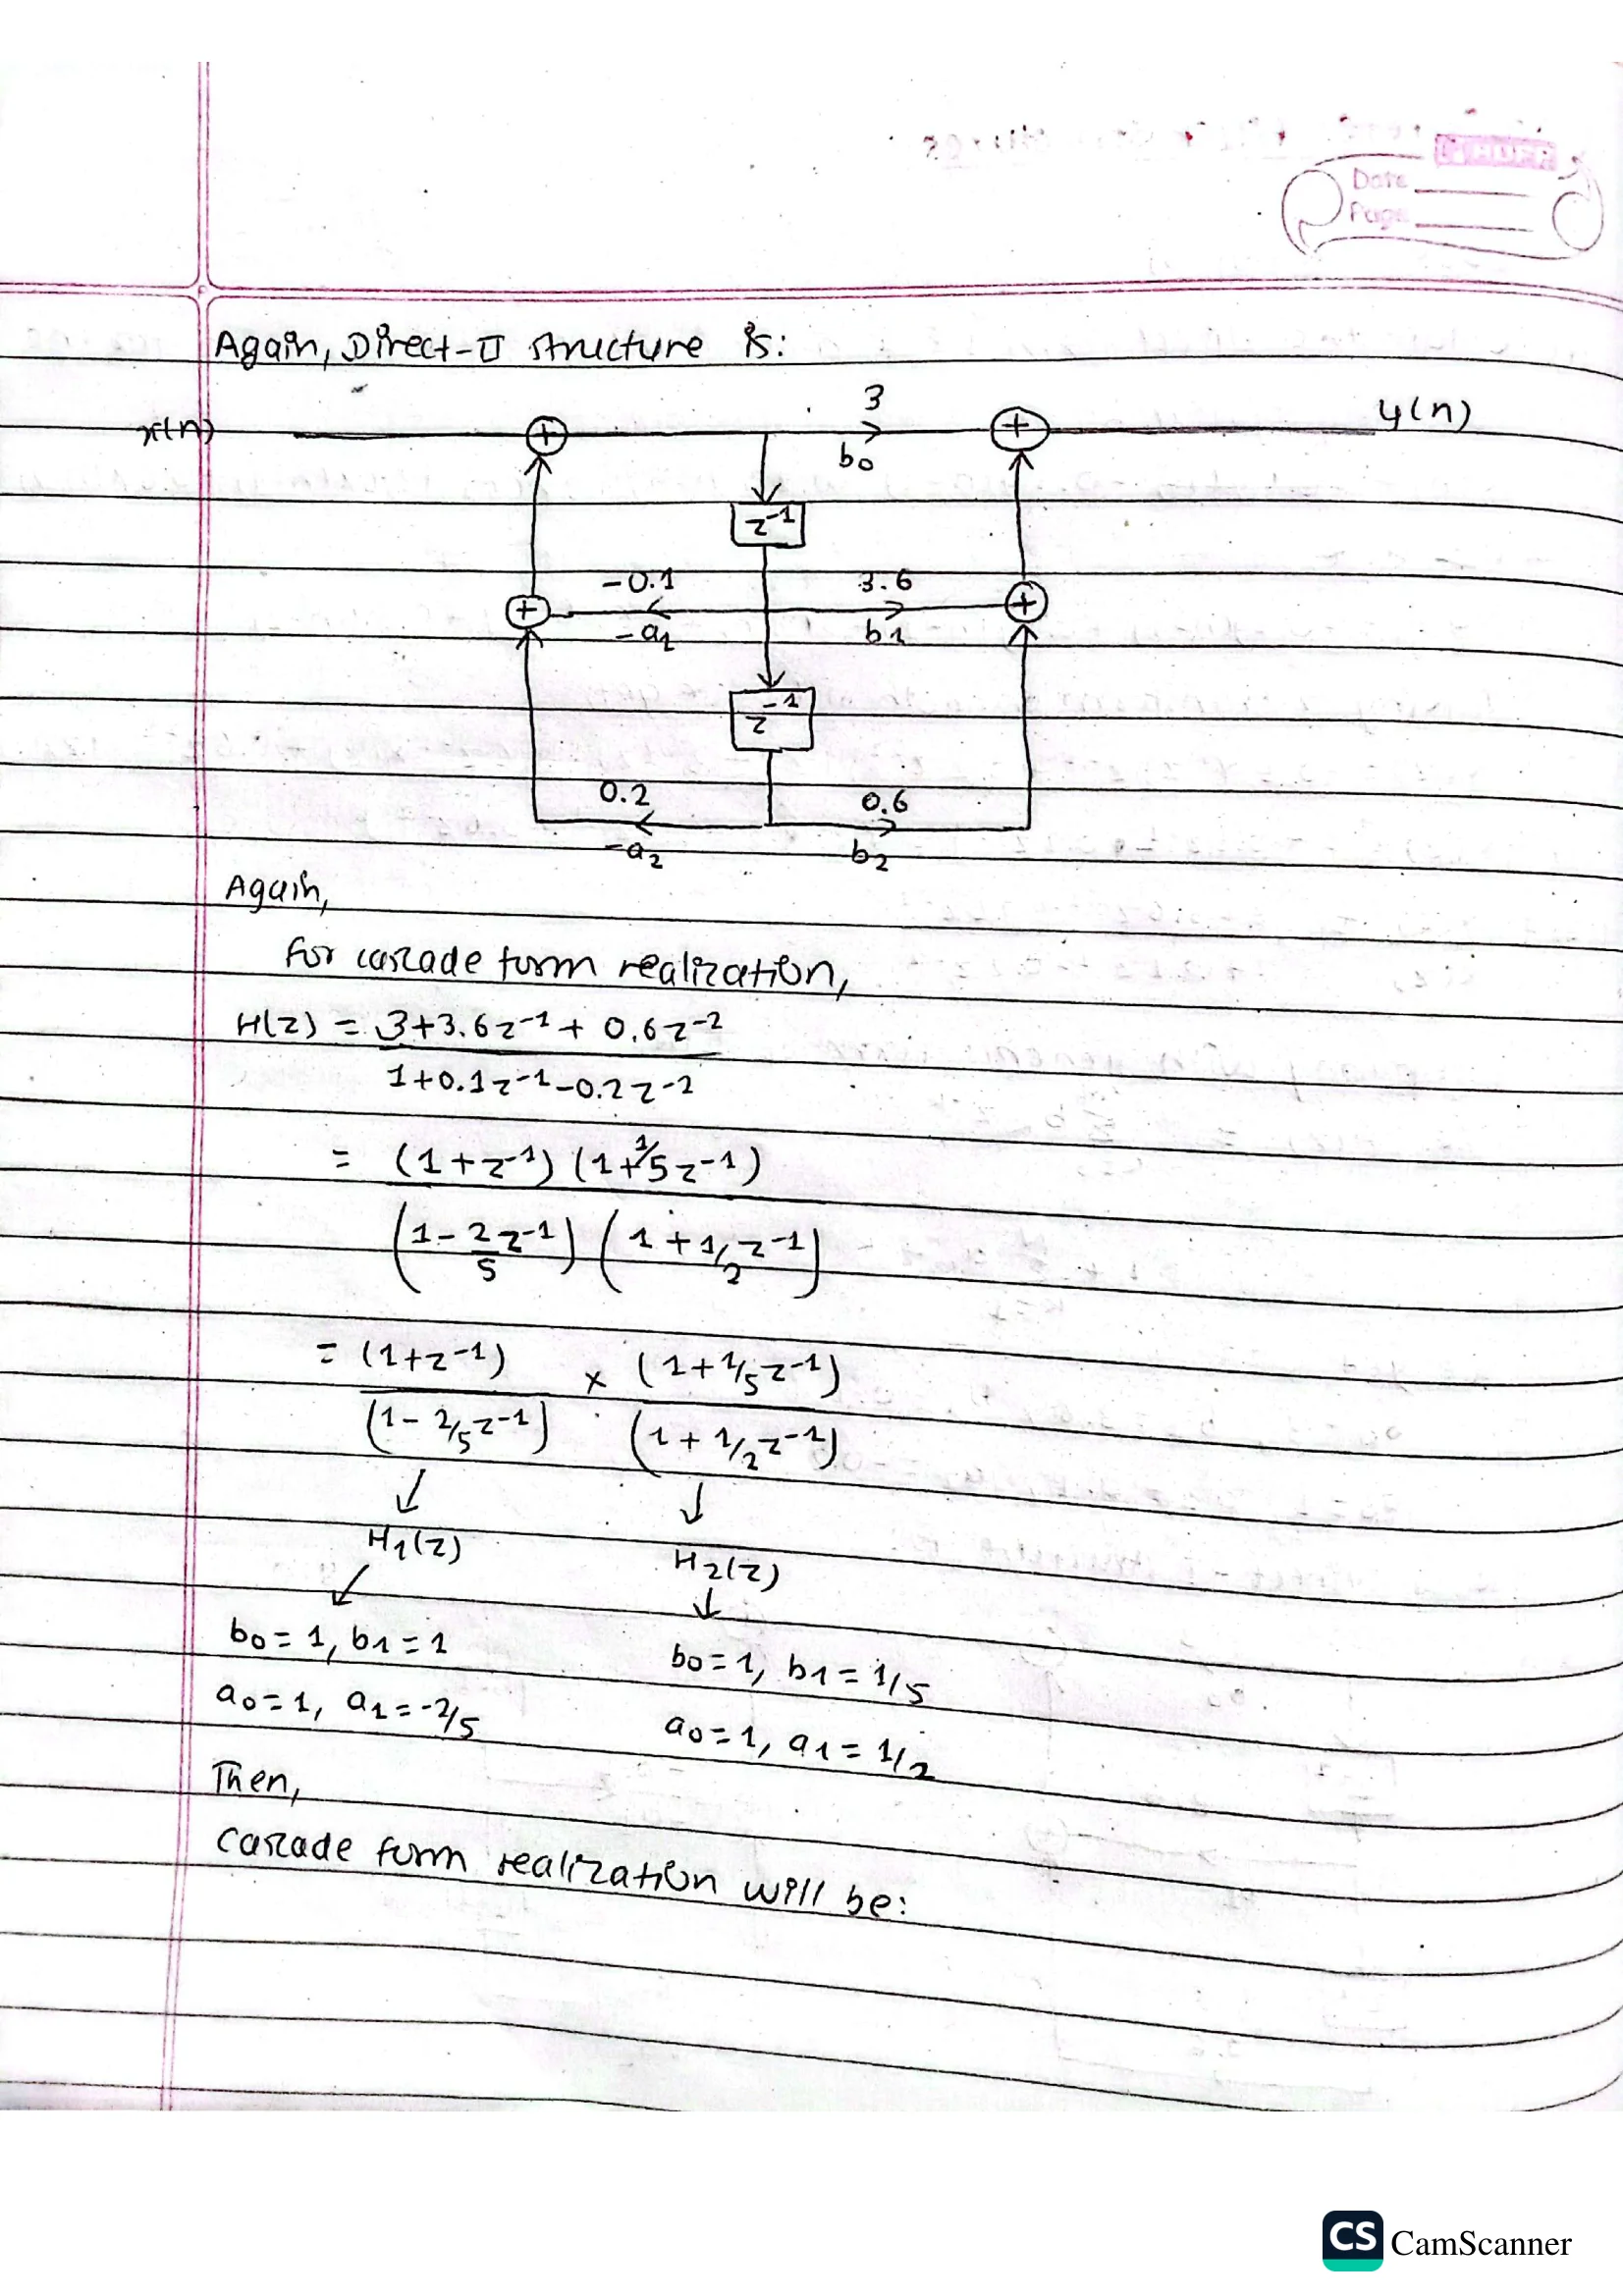 Date
Page
Again, Direct-II structure is:
x(n)
3
y(n)
b0
z⁻¹
-0.1
3.6
-a1
b1
z⁻¹
0.2
0.6
-a2
b2
Again,
For cascade form realization,
H(z) = 3+3.6z⁻¹ + 0.6z⁻²
1+0.1z⁻¹-0.2z⁻²
= (1+z⁻¹) (1+1/5z⁻¹)
(1-2/5 z⁻¹) (1+1/2 z⁻¹)
= (1+z⁻¹) x (1+1/5z⁻¹)
(1-2/5z⁻¹) (1+1/2z⁻¹)
↓ ↓
H1(z) H2(z)
↙ ↓
b0=1, b1=1 b0=1, b1=1/5
a0=1, a1=-2/5 a0=1, a1=1/2
Then,
Cascade form realization will be:
CS CamScanner